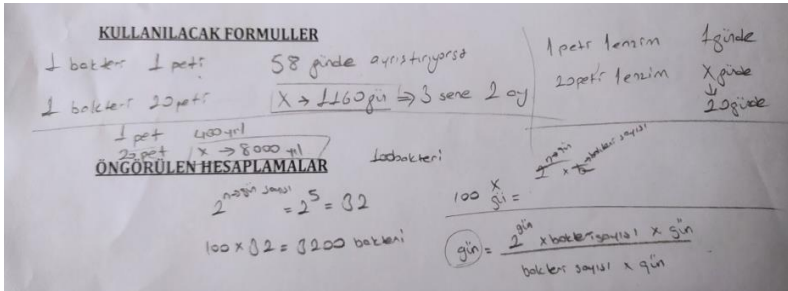 KULLANILACAK FORMULLER
1 bakteri 1 peti 58 günde ayrıştırıyorsa
1 bakteri 20 peti X → 1160 gün ⇒ 3 sene 2 ay
1 peti 1 enzim 1 günde
20 peti 1 enzim X günde
↓
20 günde
1 pet 400 yıl
20 pet X → 8000 yıl
ÖNGÖRÜLEN HESAPLAMALAR
100 bakteri
2^n→gün sayısı = 2^5 = 32
100 × 32 = 3200 bakteri
100 x gün =
2^n→gün × bakteri sayısı
gün = 2^gün × bakteri sayısı × gün
bakteri sayısı × gün